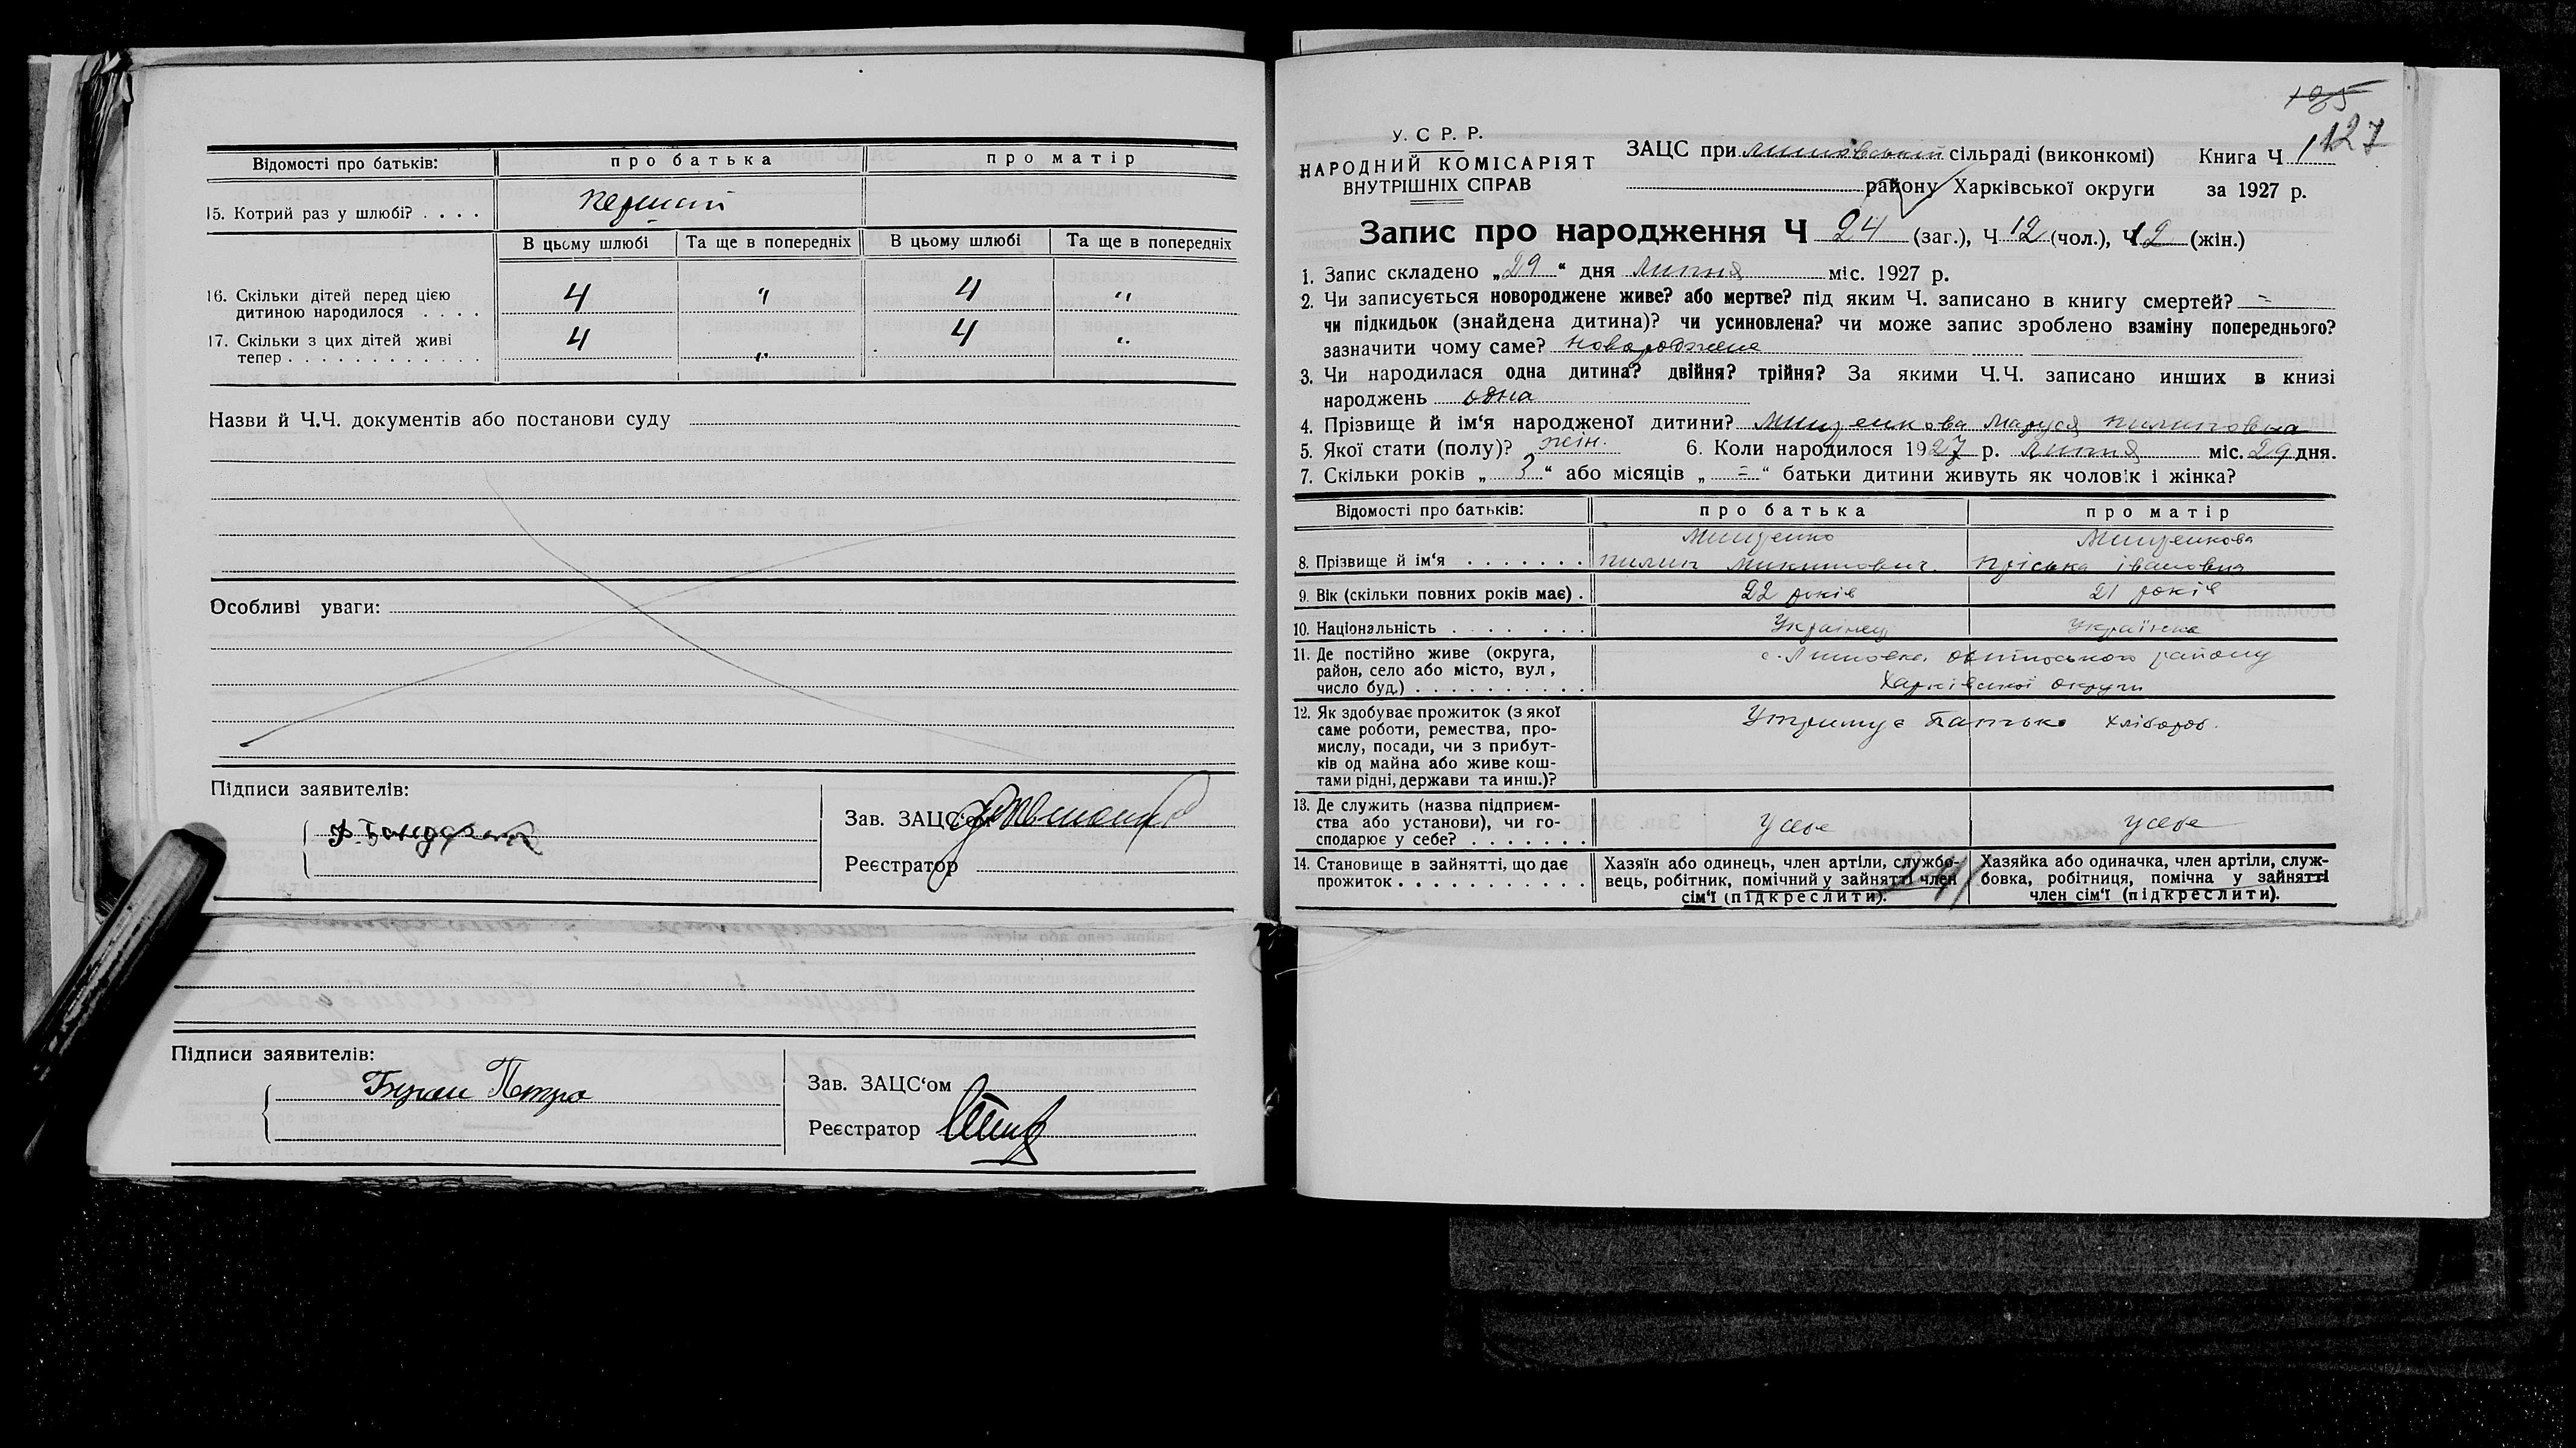 Відомості про батьків: про батька про матір
15. Котрий раз у шлюбі? . . . . перший
В цьому шлюбі Та ще в попередніх В цьому шлюбі Та ще в попередніх
16. Скільки дітей перед цією
дитиною народилося . . . . 4 " 4 "
17. Скільки з цих дітей живі
тепер . . . . . . . . . . . . 4 " 4 "
Назви й Ч.Ч. документів або постанови суду
Особливі уваги:
Підписи заявителів:
Зав. ЗАЦС'ом
Реєстратор
Підписи заявителів:
Петро
Зав. ЗАЦС'ом
Реєстратор
105
127
У. С. Р. Р.
НАРОДНИЙ КОМІСАРІЯТ
ВНУТРІШНІХ СПРАВ
ЗАЦС при липовській сільраді (виконкомі) Книга Ч 1
району Харківської округи за 1927 р.
Запис про народження Ч 24 (заг.), Ч 12 (чол.), Ч 12 (жін.)
1. Запис складено „29“ дня липня міс. 1927 р.
2. Чи записується новороджене живе? або мертве? під яким Ч. записано в книгу смертей? =
чи підкидьок (знайдена дитина)? чи усиновлена? чи може запис зроблено взаміну попереднього?
зазначити чому саме? новороджене
3. Чи народилася одна дитина? двійня? трійня? За якими Ч.Ч. записано инших в книзі
народжень одна
4. Прізвище й ім'я народженої дитини? Мищенкова Маруся пилиповна
5. Якої стати (полу)? жін. 6. Коли народилося 1927 р. липня міс. 29 дня.
7. Скільки років „3“ або місяців „=“ батьки дитини живуть як чоловік і жінка?
Відомості про батьків: про батька про матір
Мищенко Мищенкова
8. Прізвище й ім'я . . . . . . . пилип Микитович. пріська івановна
9. Вік (скільки повних років має) . 22 років 21 років
10. Національність . . . . . . . Українец Українка
11. Де постійно живе (округа, с. Липовка, району
район, село або місто, вул, Харківської округи
число буд.) . . . . . . . . . .
12. Як здобуває прожиток (з якої Утримує батько хлібороб.
саме роботи, ремества, про-
мислу, посади, чи з прибут-
ків од майна або живе кош-
тами рідні, держави та инш.)?
13. Де служить (назва підприєм-
ства або установи), чи го- у себе у себе
сподарює у себе? . . . . . . .
14. Становище в зайнятті, що дає Хазяїн або одинець, член артіли, службо- Хазяйка або одиначка, член артіли, служ-
прожиток . . . . . . . . . . . вець, робітник, помічний у зайнятті член бовка, робітниця, помічна у зайнятті
сім'ї (підкреслити). член сім'ї (підкреслити).